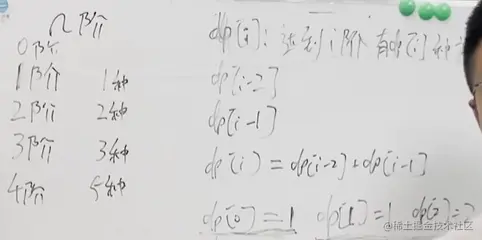 n阶
0阶
1阶 1种
2阶 2种
3阶 3种
4阶 5种
dp[i]: 达到i阶 有dp[i]种
dp[i-2]
dp[i-1]
dp[i] = dp[i-2]+dp[i-1]
dp[0]=1 dp[1]=1 dp[2]=2
@稀土掘金技术社区